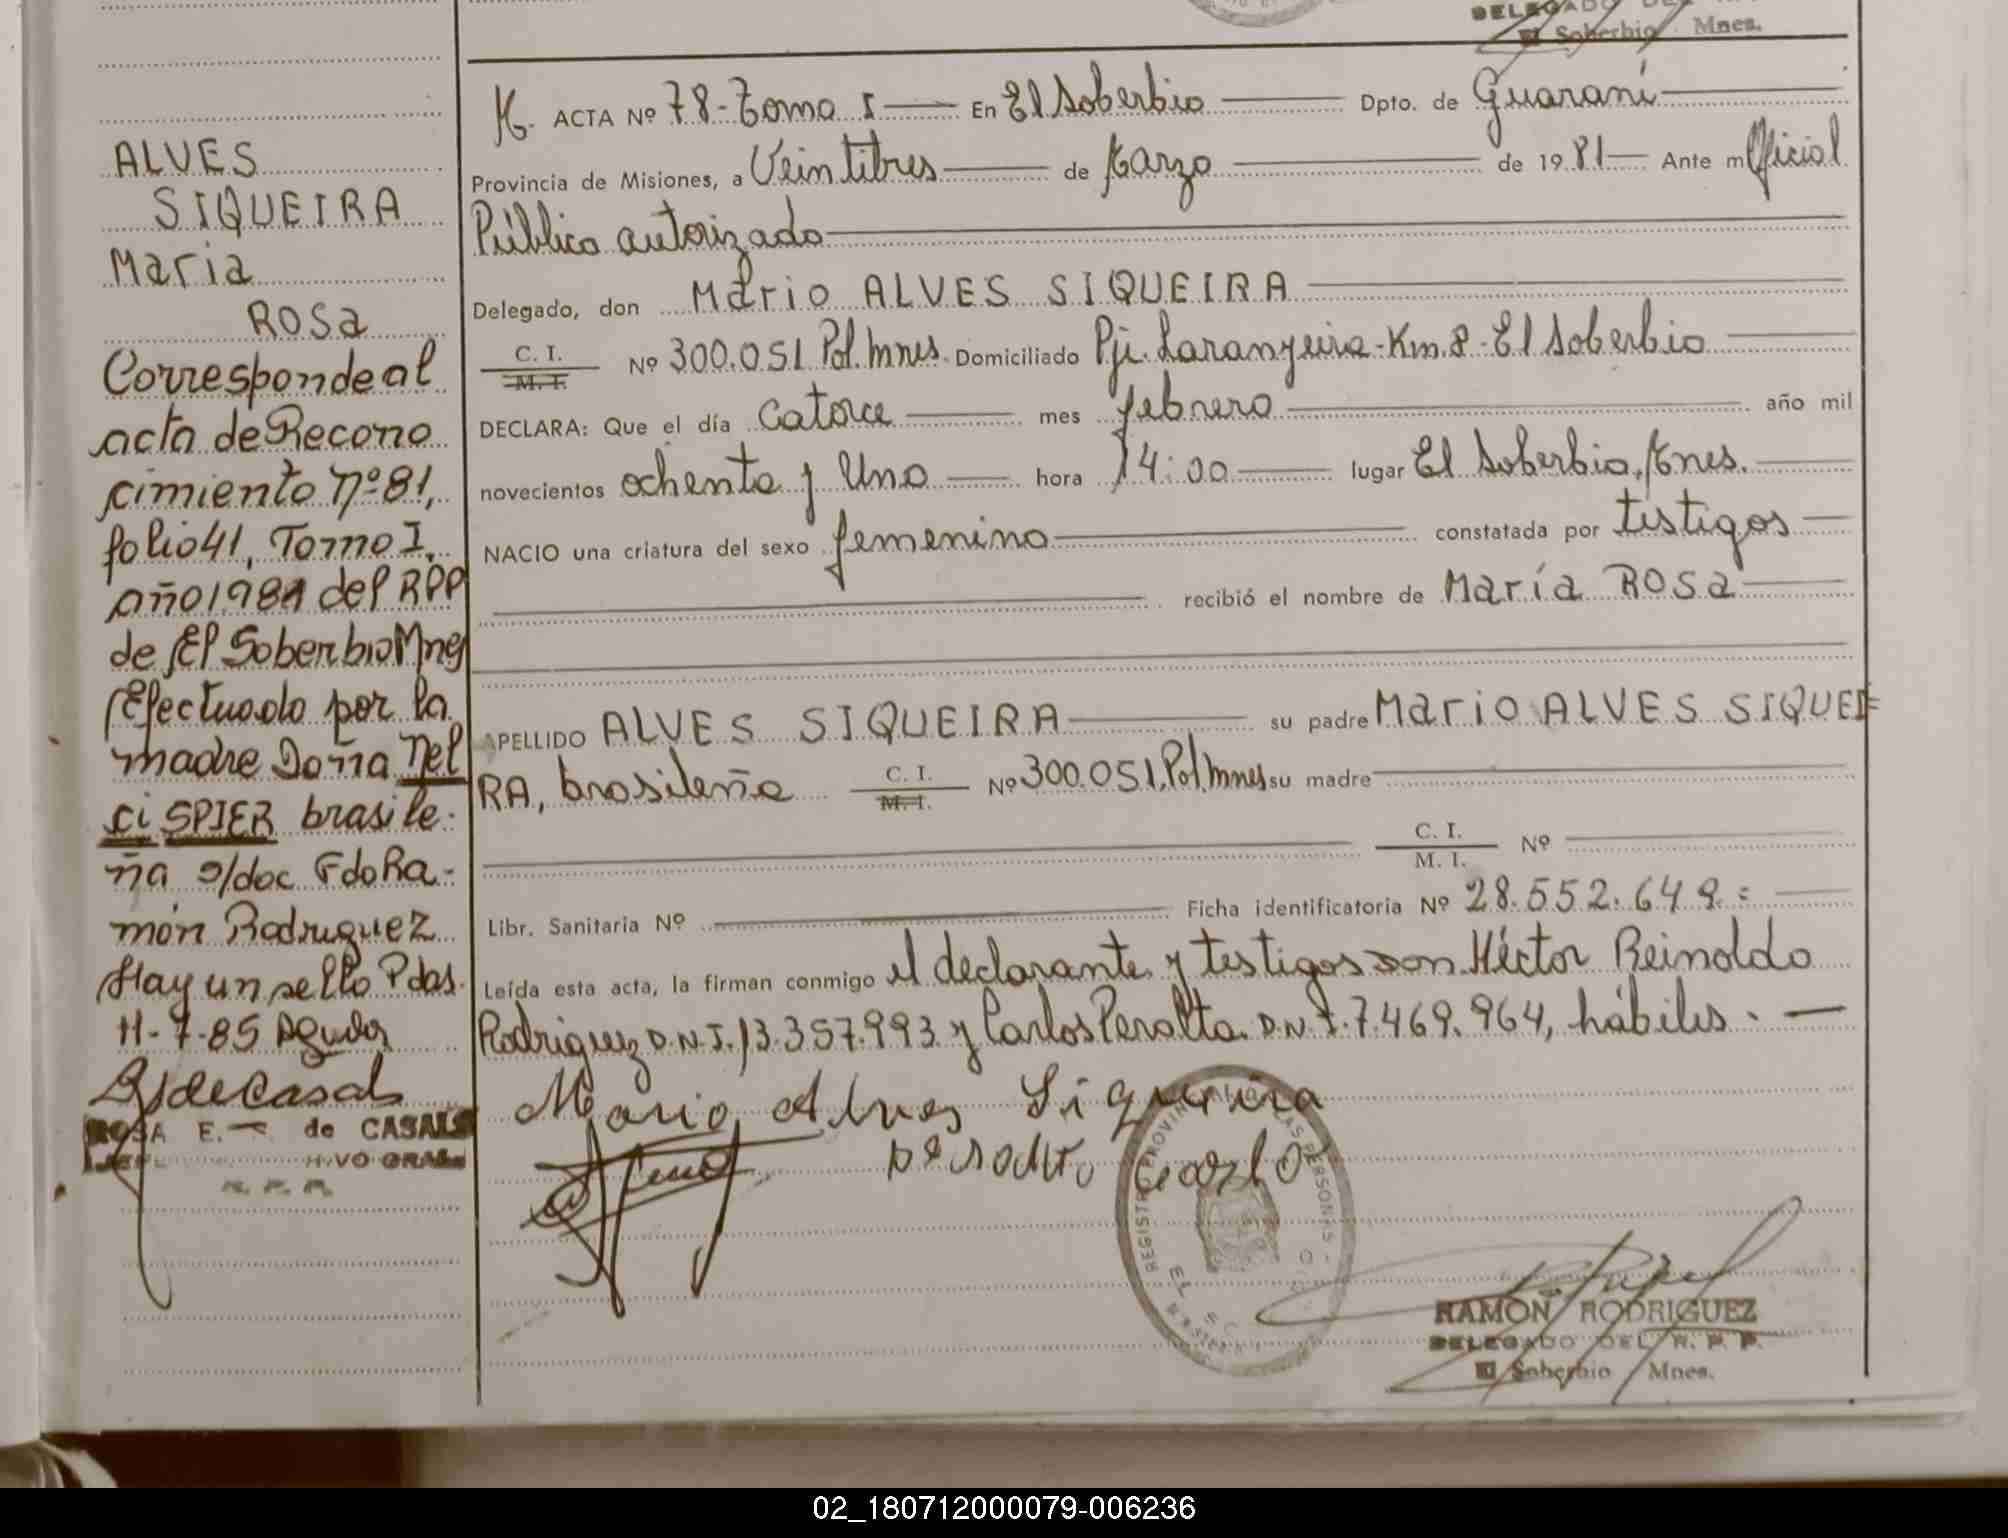 DELEGADO DEL
El Soberbio Mnes.
ALVES
SIQUEIRA
Maria
ROSa
Corresponde al
acta de Recono
cimiento nº 81,
folio 41, Tomo I,
año 1981 del RPP
de El Soberbio Mnes
Efectuado por la
madre Doña Nel
ci SPIER brasile-
ña s/doc Fdo Ra-
món Rodriguez
Hay un sello Pdas.
11-7-85
ROSA E. de CASALS
R. P. P.
ACTA Nº 78-Tomo I En El Soberbio Dpto. de Guaraní
Provincia de Misiones, a Veintitres de Marzo de 19 81 Ante mí Oficial
Público autorizado
Delegado, don Mario ALVES SIQUEIRA
C. I.
M. I. Nº 300.051 Pol. Mnes. Domiciliado Pje. Laranjeira-Km. 8-El Soberbio
DECLARA: Que el día Catorce mes febrero año mil
novecientos ochenta y Uno hora 14:00 lugar El Soberbio, Mnes.
NACIO una criatura del sexo femenino constatada por testigos
recibió el nombre de María ROSa
APELLIDO ALVES SIQUEIRA su padre Mario ALVES SIQUEI=
RA, brasileña C. I. M. I. Nº 300.051, Pol. Mnes su madre
C. I.
M. I. Nº
Libr. Sanitaria Nº Ficha identificatoria Nº 28.552.649.=
Leída esta acta, la firman conmigo el declarante y testigos don Héctor Reinoldo
Rodriguez D.N.I. 13.357.993 y Carlos Peralta D.N.I. 7.469.964, hábiles. -
Mario Alves Siqueira
REGISTRO PROVINCIAL DE LAS PERSONAS
RAMON RODRIGUEZ
DELEGADO DEL R. P. P.
El Soberbio Mnes.
02_180712000079-006236